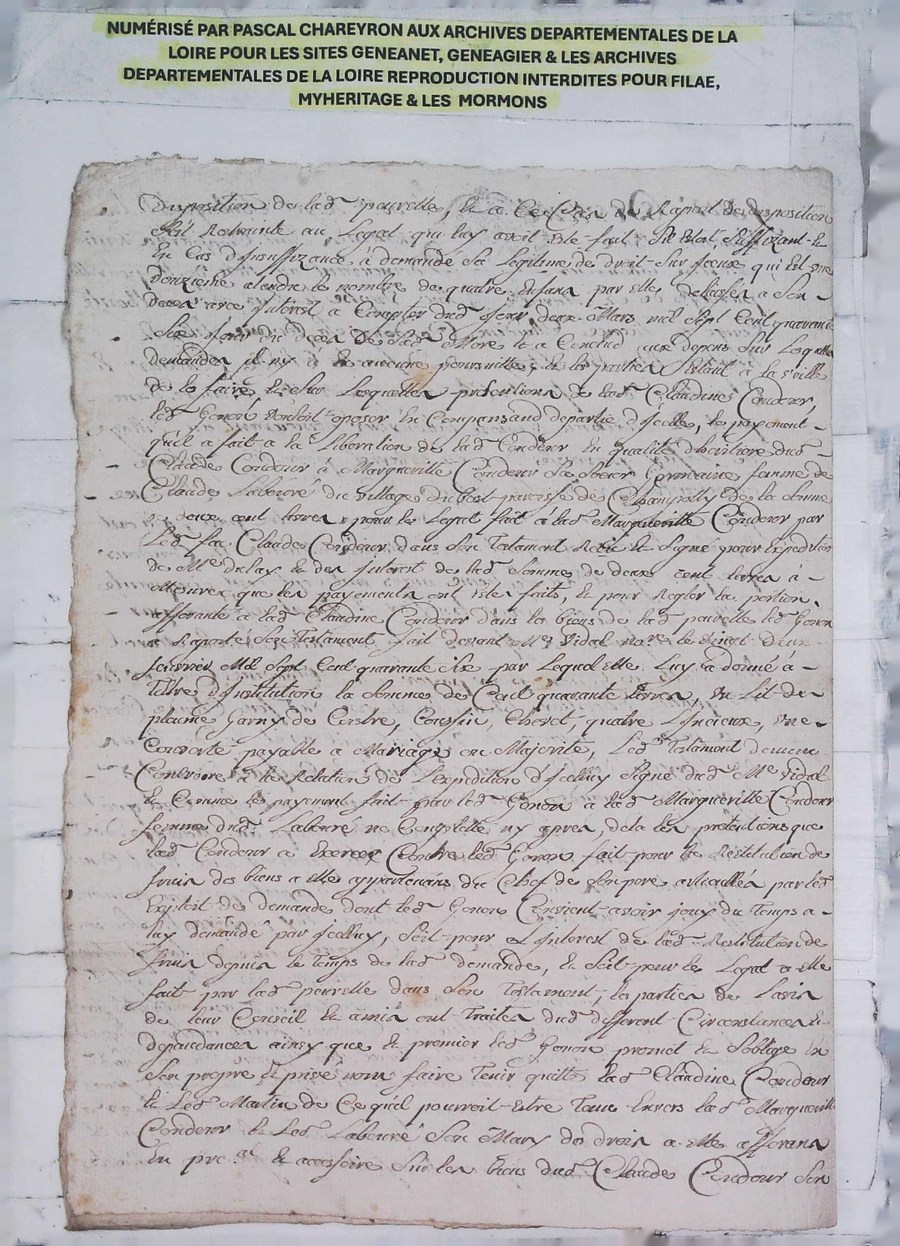 NUMÉRISÉ PAR PASCAL CHAREYRON AUX ARCHIVES DEPARTEMENTALES DE LA
LOIRE POUR LES SITES GENEANET, GENEAGIER & LES ARCHIVES
DEPARTEMENTALES DE LA LOIRE REPRODUCTION INTERDITES POUR FILAE,
MYHERITAGE & LES MORMONS
disposition de lad. pouvelle, et a de disposition
au Legat qui luy avoit este fait
En Cas d'insuffizance, a demandé Sa Legitime de droit Sur qui Est une
douzieme le nombre de quatre Enfans par elle a Son
avec Interest a Compter dud. jour deux Mars mil Sept Cent quarante
Six jour du deces de Sad. Mere et a Conclud aux depens Sur
demandes il ny a Eu aucune et les parties a la veille
de le faire, et Sur Lesquelles pretentions de lad. Claudine Condour,
led. Gonon Vouloit oposer En d'Icelles, le payement
qu'il a fait a la Liberation de lad. Condour En qualité d'heritiere dud.
Claude Condour a Margueritte Condour Sa Soeur Germaine femme de
Claude Labouré du Village du paroisse de Champoly De la Somme
de deux cent livres pour le Legat fait a lad. Margueritte Condour par
Led. feu Claude Condour dans Son Testament Signé pour Expedition
de Me. delay et des Interest de lad. Somme de deux cent livres a
Mesure que les payements ont Este faits, Et pour Regler la portion
afferante a lad. Claudine Condour dans les biens de lad. pouvelle led. Gonon
a Raporté Son Testament fait devant Me. Vidal nore. le Vingt Deux
fevrier Mil Sept Cent quarante Six par Lequel elle Luy a donné a
Tiltre d'Institution la Somme de Cent quarante livres, un Lit de
plume Garny de Coussin, Chevet, quatre Linceux, une
Couverte payable a Mariage ou Majorité, Led. Testament
a la Relation de l'expedition d'Icelluy Signé dud. Me. Vidal
Et Comme le payement fait par led. Gonon a lad. Margueritte Condour
femme dud. Labouré ne ny apres, dela les pretentions que
lad. Condour a Exercé Contre led. Gonon Soit pour la Restitution de
fruis des biens a elle appartenans du Chef de Son pere par led.
Exploit de demande dont led. Gonon Convient avoir jouy du Temps a
luy demandé par Icelluy, Soit pour Interest de lad. Restitution de
fruis depuis le Temps de lad. demande, Et Soit pour le Legat a elle
fait par lad. pouvelle dans Son Testament, les parties de Lavis
de leur Conseil Et amis ont Traités dud. different Circonstances Et
dependances ainsy que le premier led. Gonon promet Et S'oblige En
Son propre Et privé nom faire Tenir quitte lad. Claudine Condour
Et Led. Martin de Ce qu'il pourroit Estre Tenu Envers lad. Margueritte
Condour Et Led. Labouré Son Mary des droits a elle afferans
En pr.al Et accessoire Sur les biens dud. Claude Condour Son